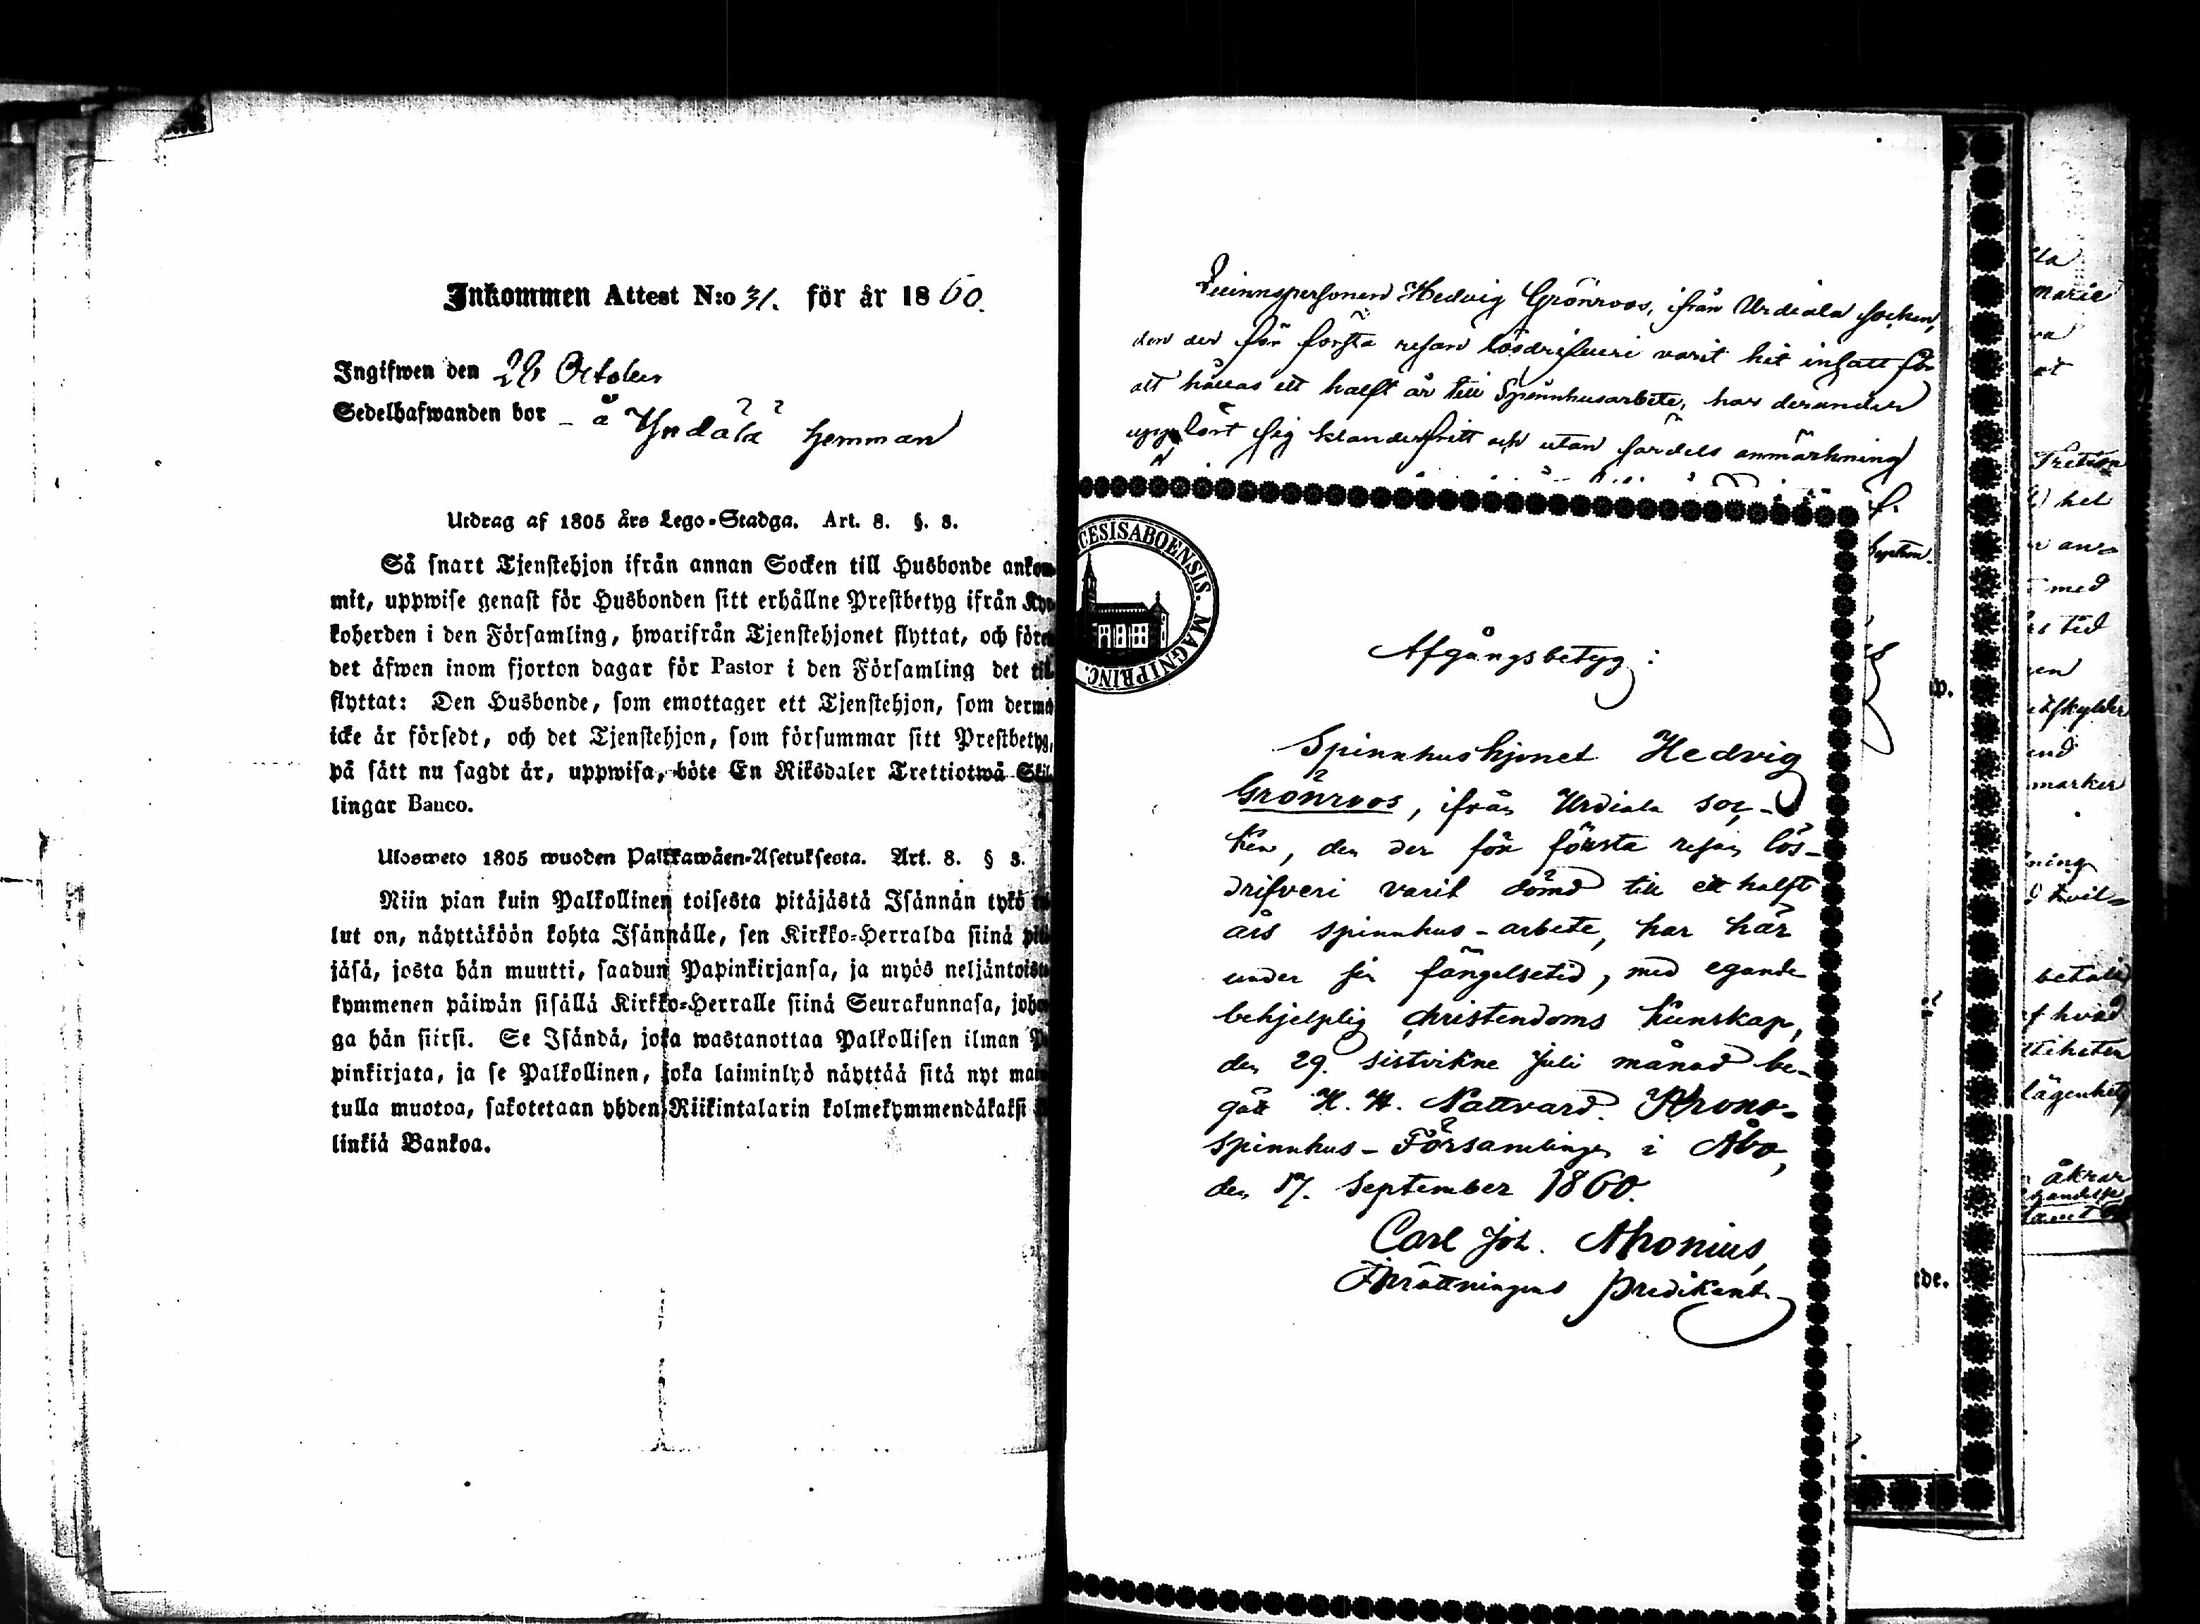 Inkommen Attest N:o 31. för år 1860.
Ingifwen den 28 October
Sedelhafwanden bor - å hemman
Utdrag af 1805 års Lego-Stadga. Art. 8. §. 3.
Så snart Tjenstehjon ifrån annan Socken till Husbonde ankom
mit, uppwise genast för Husbonden sitt erhållne Prestbetyg ifrån Kyr
koherden i den Församling, hwarifrån Tjenstehjonet flyttat, och före
det äfwen inom fjorton dagar för Pastor i den Församling det til
flyttat: Den Husbonde, som emottager ett Tjenstehjon, som derme
icke är försedt, och det Tjenstehjon, som försummar sitt Prestbetyg,
på sätt nu sagdt är, uppwisa, böte En Riksdaler Trettiotwå Skil
lingar Banco.
Ulosweto 1805 wuoden Palkkawäen-Asetuksesta. Art. 8. § 3.
Niin pian kuin Palkollinen toisesta pitäjästä Isännän tykö tu
lut on, näyttäköön kohta Isännälle, sen Kirkko-Herralda siinä pitä
jäsä, josta hän muutti, saadun Papinkirjansa, ja myös neljäntoista
kymmenen päiwän sisällä Kirkko-Herralle siinä Seurakunnasa, johon
ga hän siirsi. Se Isändä, joka wastanottaa Palkollisen ilman Pa
pinkirjata, ja se Palkollinen, joka laiminlyö näyttää sitä nyt mai
tulla muotoa, sakotetaan yhden Riikintalarin kolmekymmendäkaksi
linkiä Bankoa.
Qvinnspersonen Hedvig Grönroos, ifrån Urdiala socken,
den der för första resan lösdrifveri varit hit insatt för
att hållas ett halft år till Spinnhusarbete, har derunder
uppfört sig klanderfritt och utan särdels anmärkning
CESISABOENSIS. MAGNIPRINC.
Afgångsbetyg:
Spinnhushjonet Hedvig
Grönroos, ifrån Urdiala soc-
ken, den der för första resan lös-
drifveri varit dömd till ett halft
års spinnhus-arbete, har här
under sin fängelsetid, med egande
behjelplig christendoms kunskap,
den 29. sistvikne Juli månad be-
gått H. H. Nattvard. Krono-
spinnhus-Församlingen i Åbo,
den 17. September 1860.
Carl Joh. Ahonius,
Inrättningens Predikant